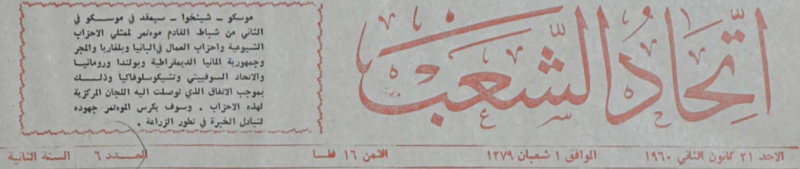 اتحاد الشعب
موسكو ــ شينخوا ــ سيعقد في موسكو في
الثاني من شباط القادم موءتمر لممثلي الاحزاب
الشيوعية واحزاب العمال في البانيا وبلغاريا والمجر
وجمهورية المانيا الديمقراطية وبولندا ورومانيا
والاتحاد السوفييتي وتشيكوسلوفاكيا وذلك
بموجب الاتفاق الذي توصلت اليه اللجان المركزية
لهذه الاحزاب . وسوف يكرس الموءتمر جهوده
لتبادل الخبرة في تطور الزراعة .
الاحد ٣١ كانون الثاني ١٩٦٠ الموافق ١ شعبان ١٣٧٩ الثمن ١٦ فلسا العدد ٦ السنة الثانية